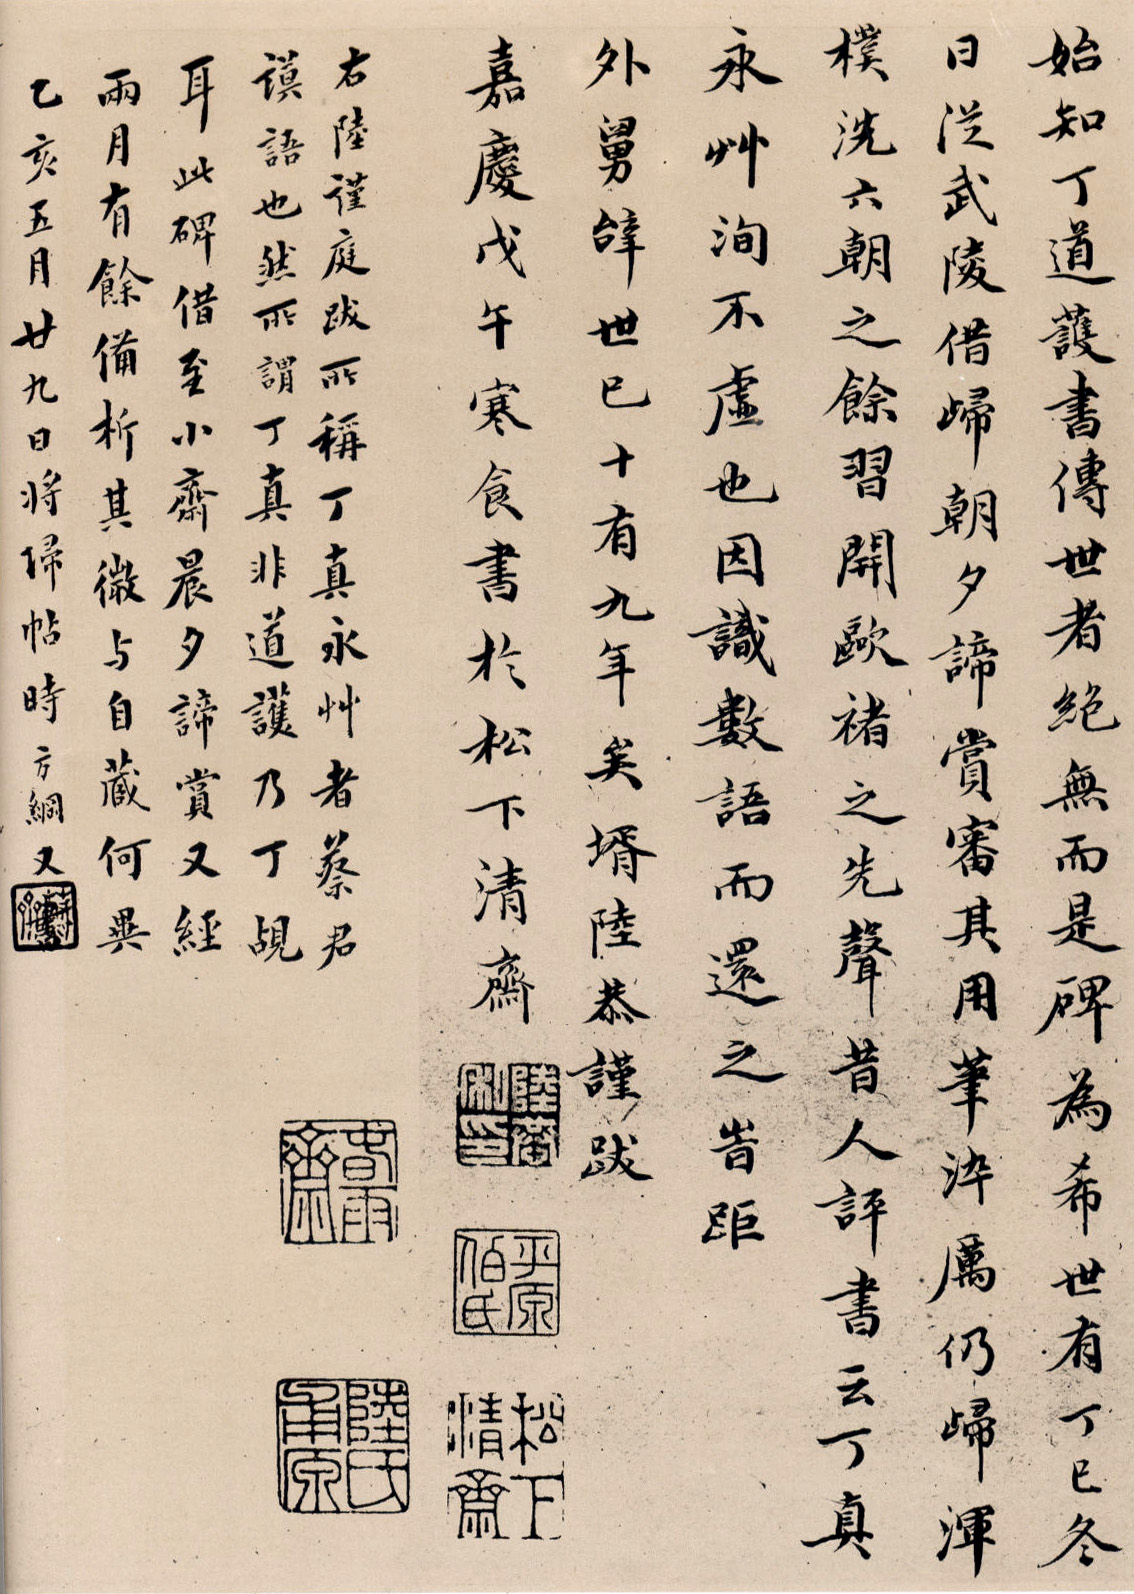 始知丁道護書傳世者絕無而是碑為希世有丁巳冬
日從武陵借歸朝夕諦賞審其用筆沖厲仍歸渾
樸洗六朝之餘習開歐褚之先聲昔人評書云丁真
永艸洵不虛也因識數語而還之旹距
外舅辥世已十有九年矣壻陸恭謹跋
嘉慶戊午寒食書於松下清齋
平原伯氏
松下清齋
右陸謹庭跋所稱丁真永艸者蔡君
謨語也然所謂丁真非道護乃丁覘
耳此碑借至小齋晨夕諦賞又經
兩月有餘備析其微与自藏何異
乙亥五月廿九日將歸帖時方綱又
春雨齋